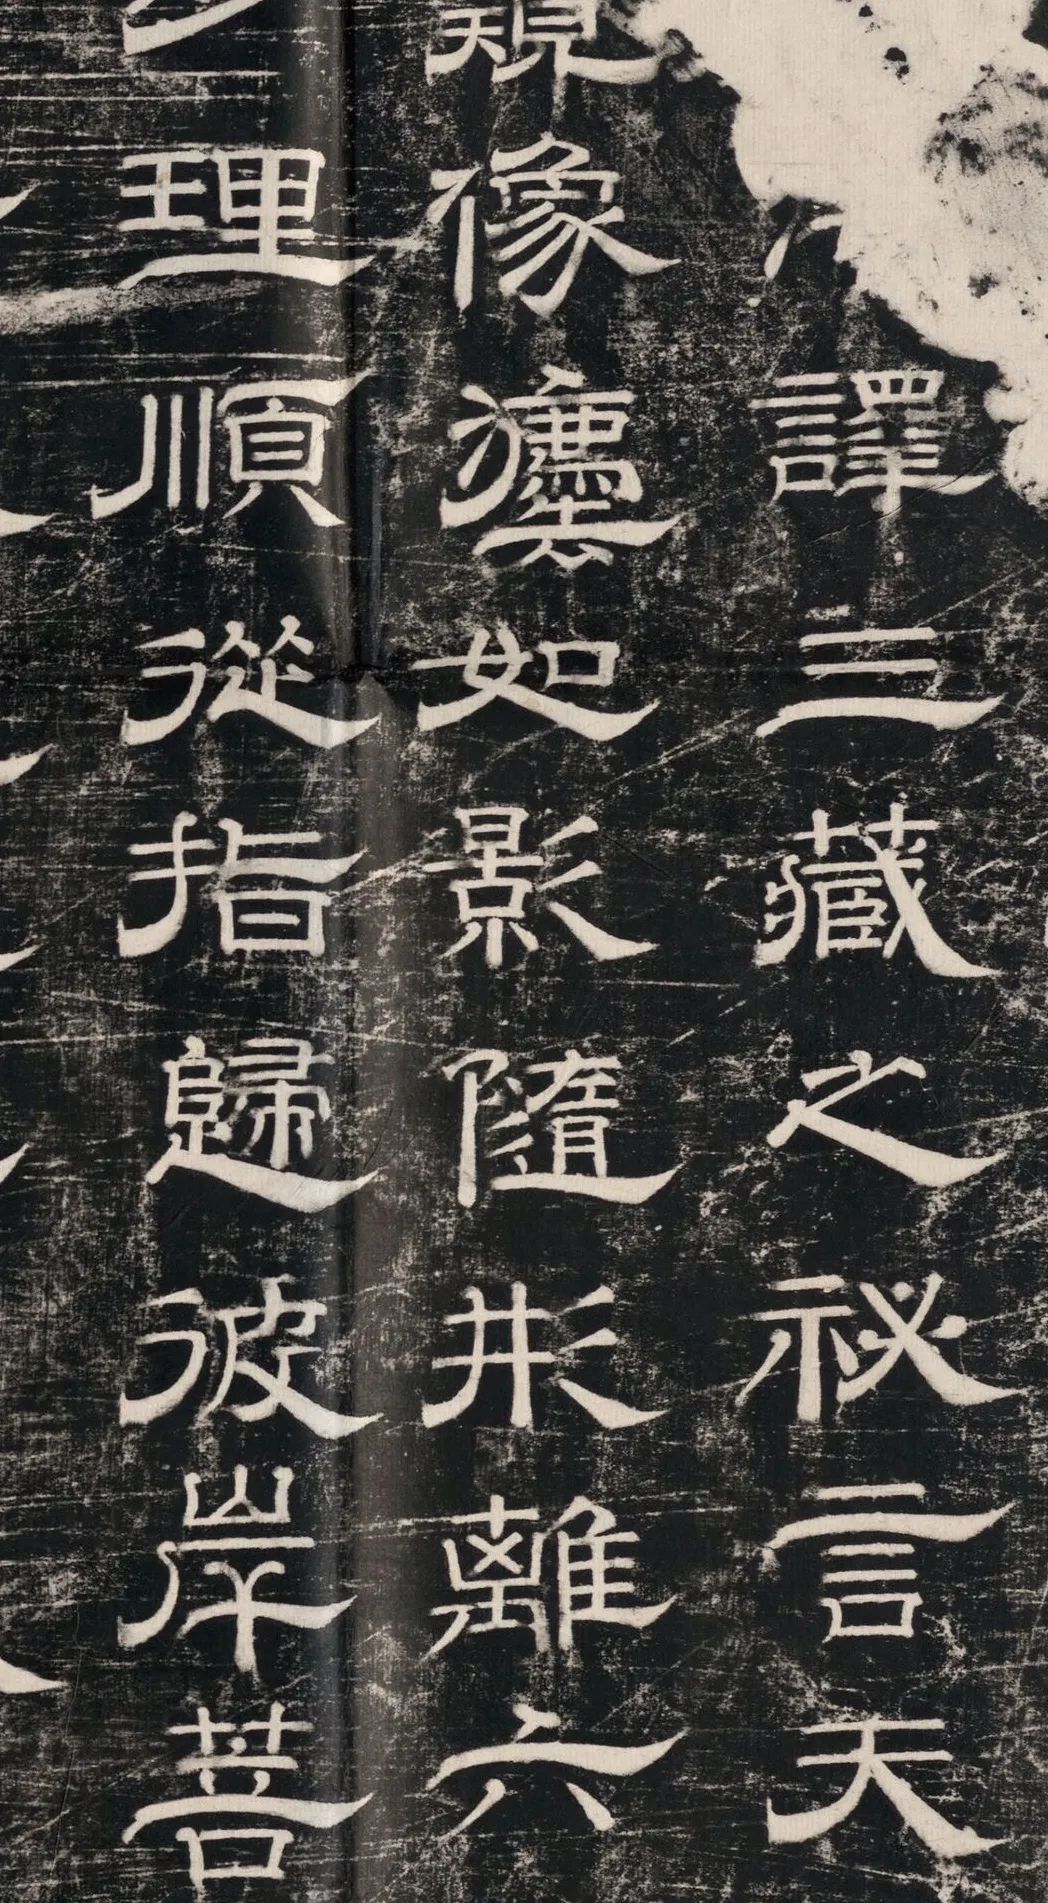 譯三藏之祕言天
像應如影隨形離六
理順從指歸彼岸菩